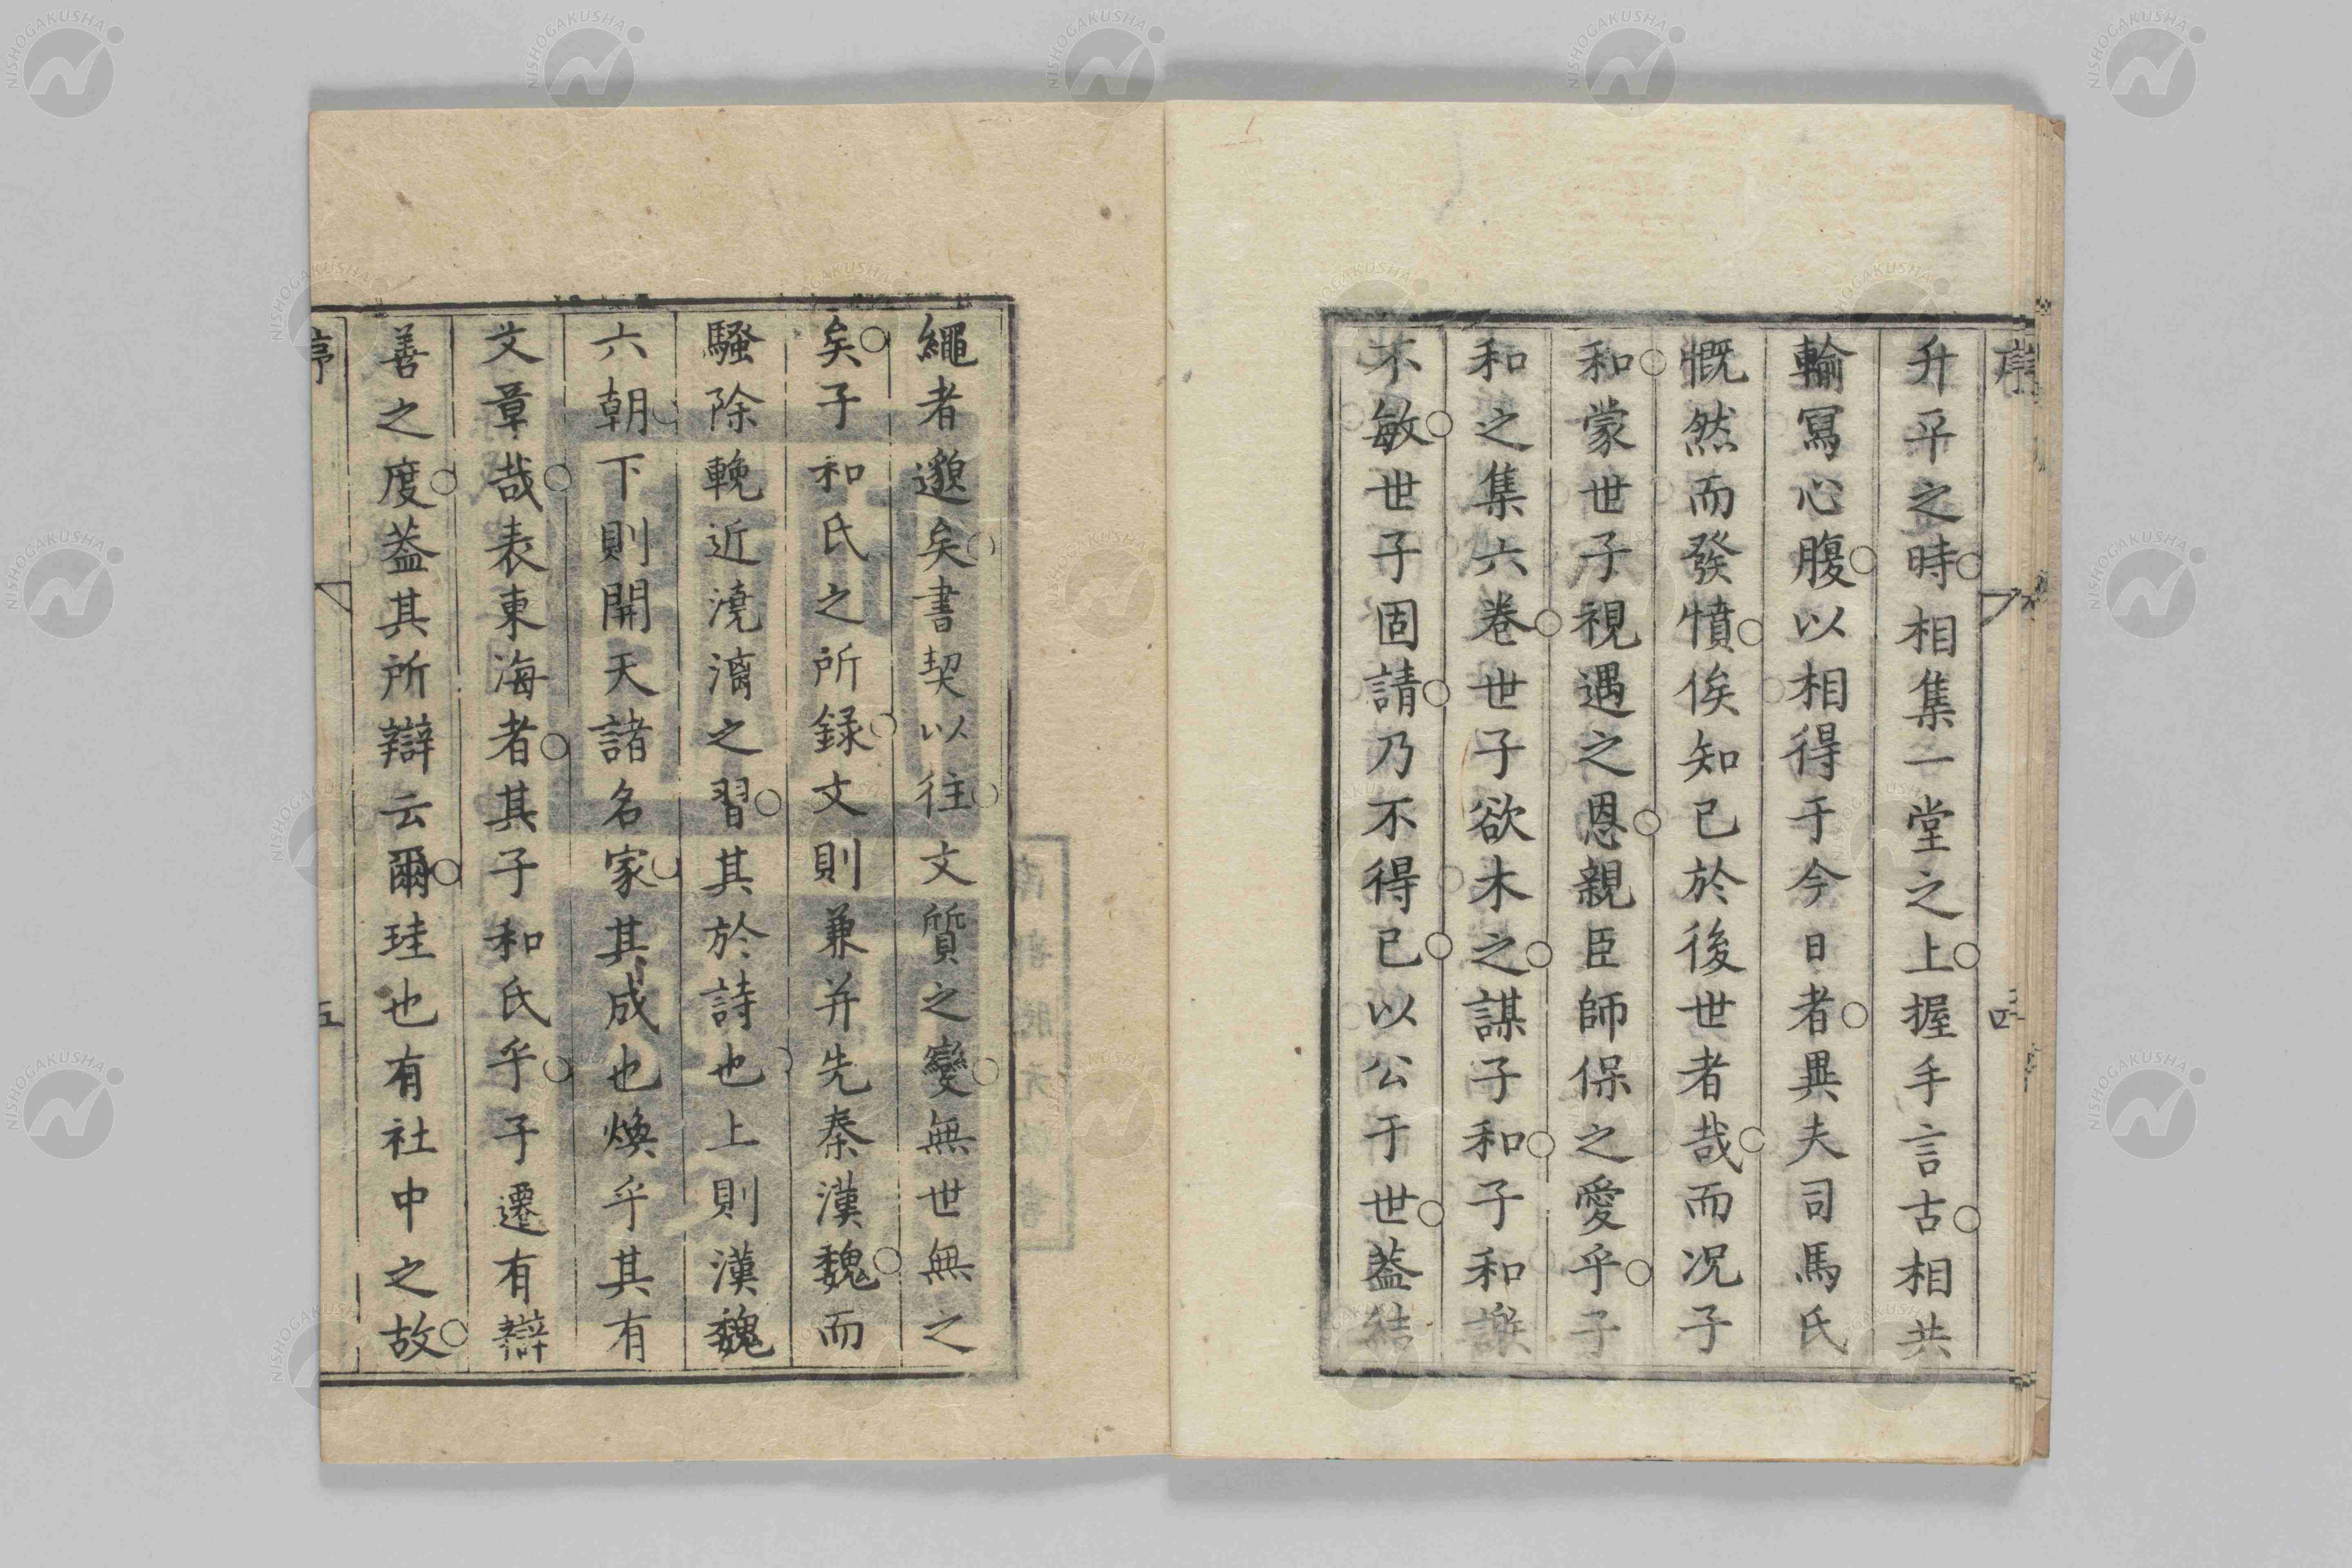 序
四
升平之時相集一堂之上握手言古相共
輸寫心腹以相得于今日者異夫司馬氏
慨然而發憤俟知己於後世者哉而况子
和蒙世子視遇之恩親臣師保之愛乎子
和之集六卷世子欲木之謀子和子和謙
不敏世子固請乃不得已以公于世蓋結
繩者邈矣書契以往文質之變無世無之
矣子和氏之所録文則兼并先秦漢魏而
騷除輓近澆漓之習其於詩也上則漢魏
六朝下則開天諸名家其成也煥乎其有
文章哉表東海者其子和氏乎子遷有辯
善之度蓋其所辯云爾珪也有社中之故
序
五
NISHOGAKUSHA